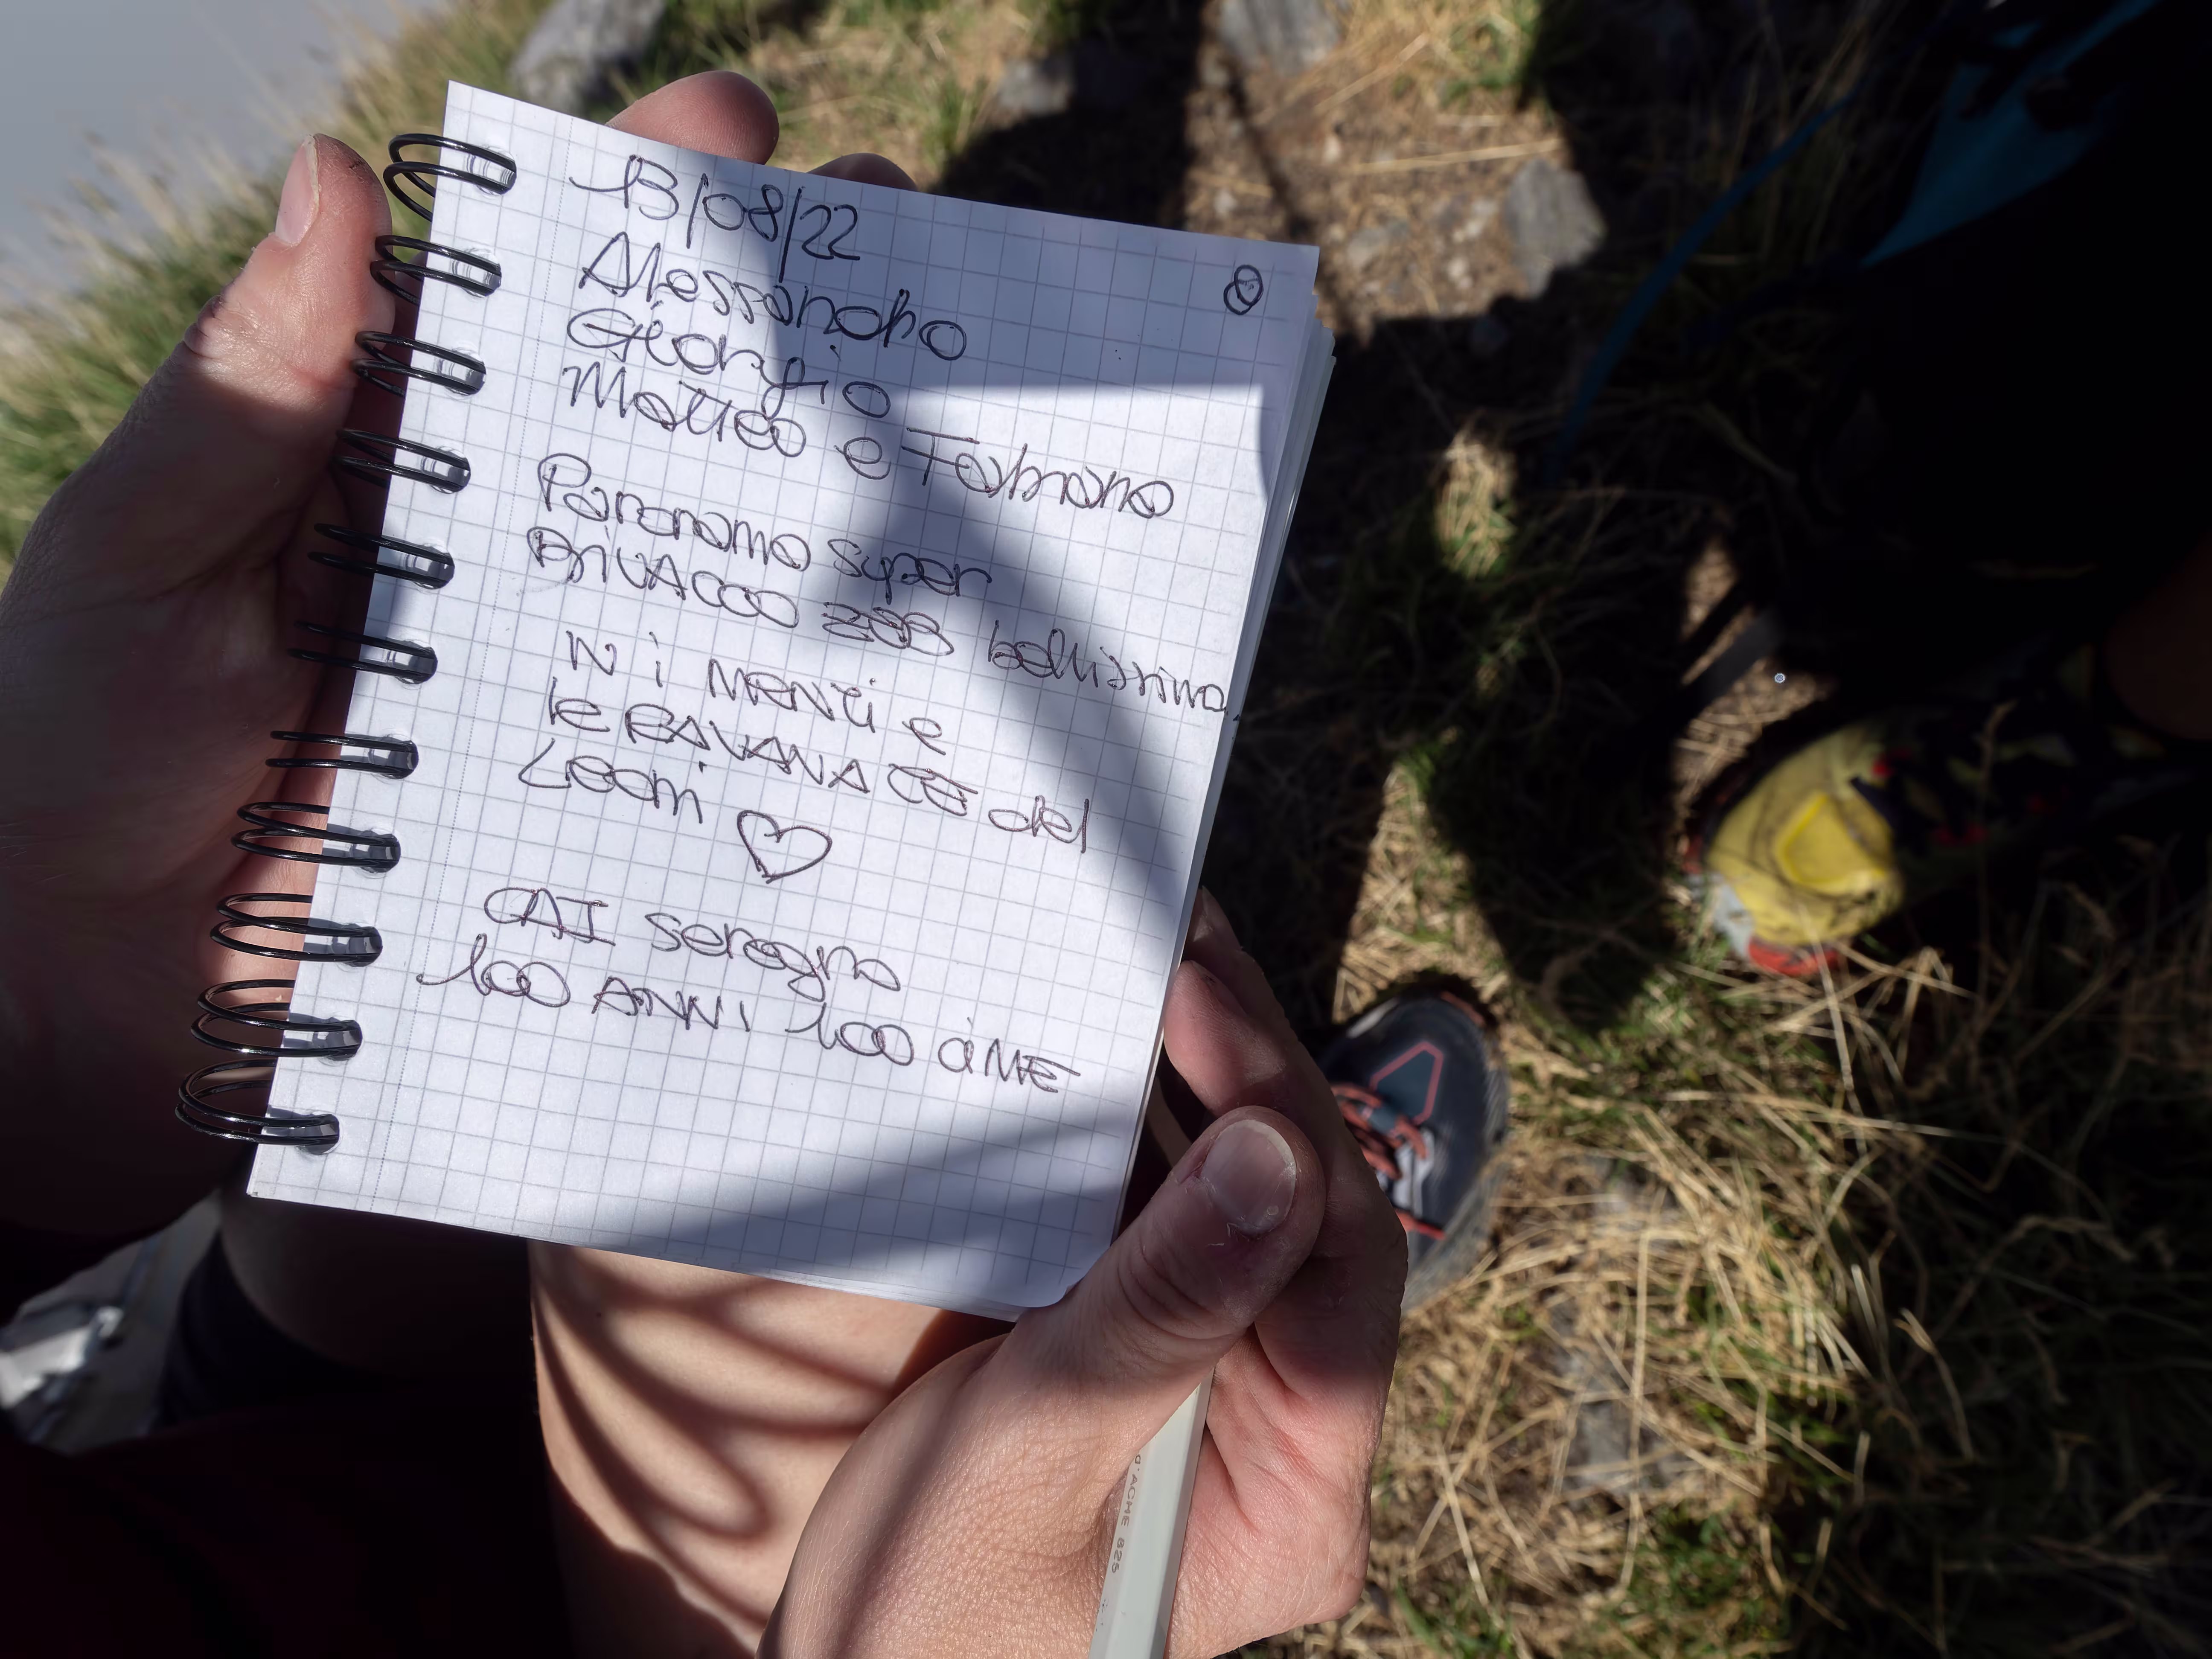 13/08/22
8
Alessandro
Giorgio
Matteo e Fabiano
Panorama super
BiVACCO bellissimo.
W i MERLi e
le BAVANATE del
Leoni
CAI seregno
100 ANNI 100 CiME
d'ACME 825